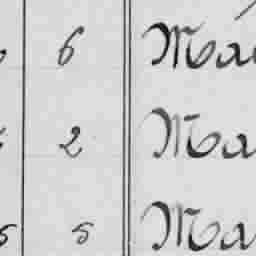 6 Ma
2 Ma
5 5 Ma